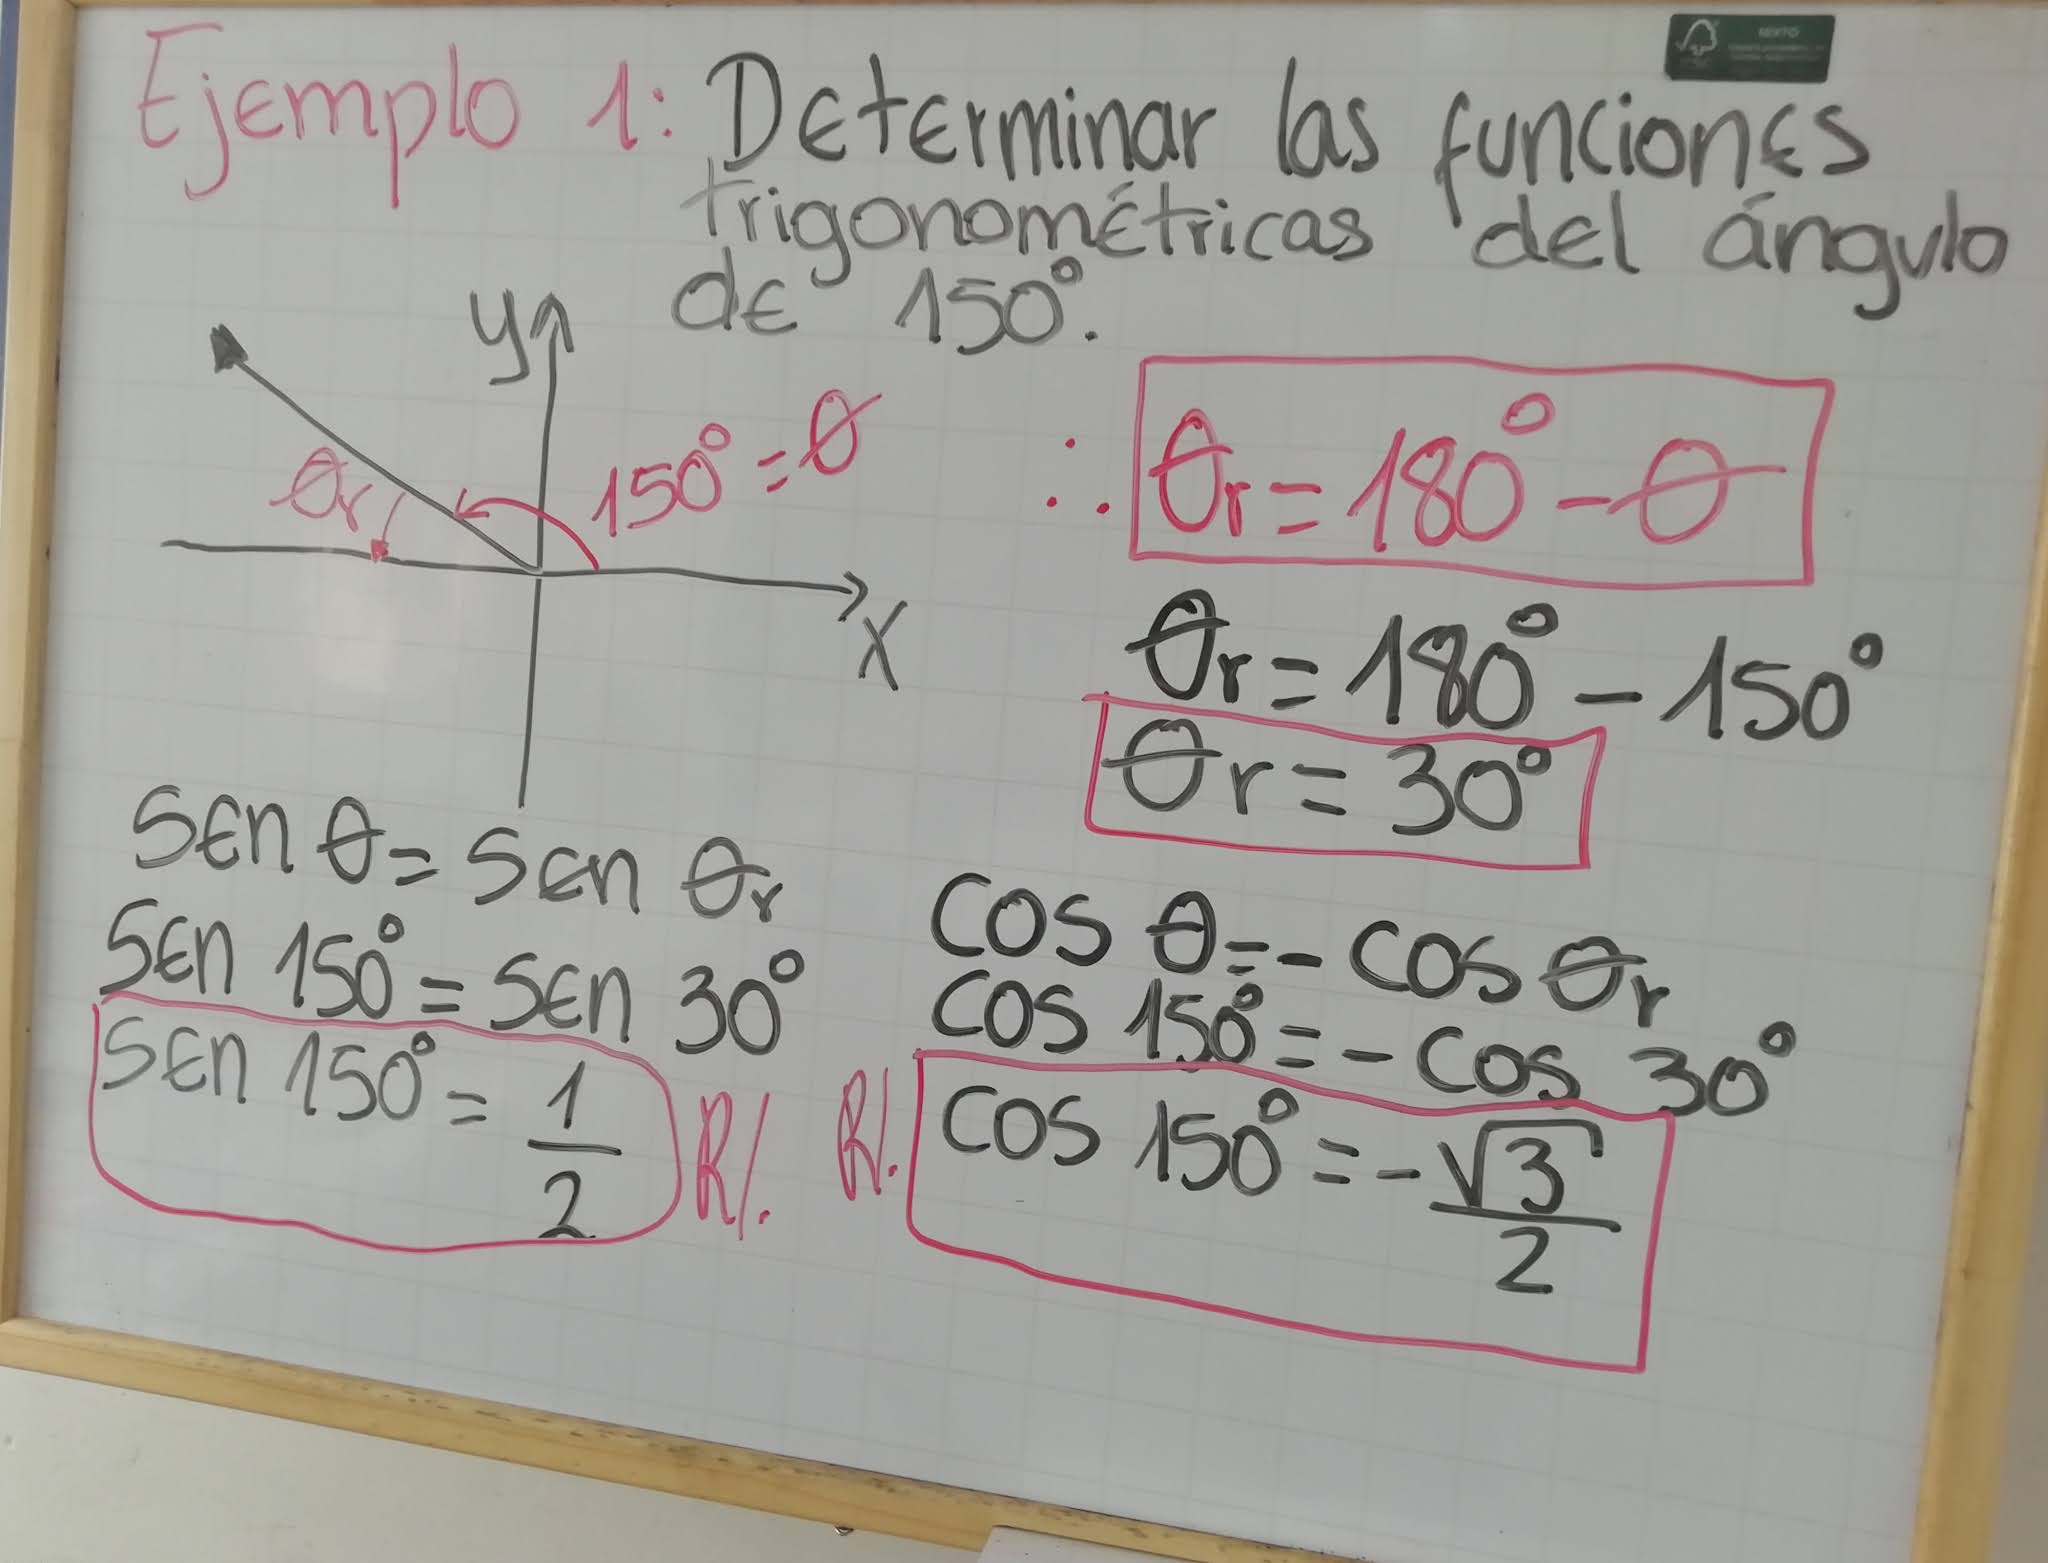 Ejemplo 1: Determinar las funciones
trigonométricas del ángulo
de 150°.
y
x
θr
150° = θ
∴ θr = 180° - θ
θr = 180° - 150°
θr = 30°
sen θ = sen θr
sen 150° = sen 30°
sen 150° = 1/2 R/.
cos θ = - cos θr
cos 150° = - cos 30°
R/. cos 150° = - √3/2
MIXTO